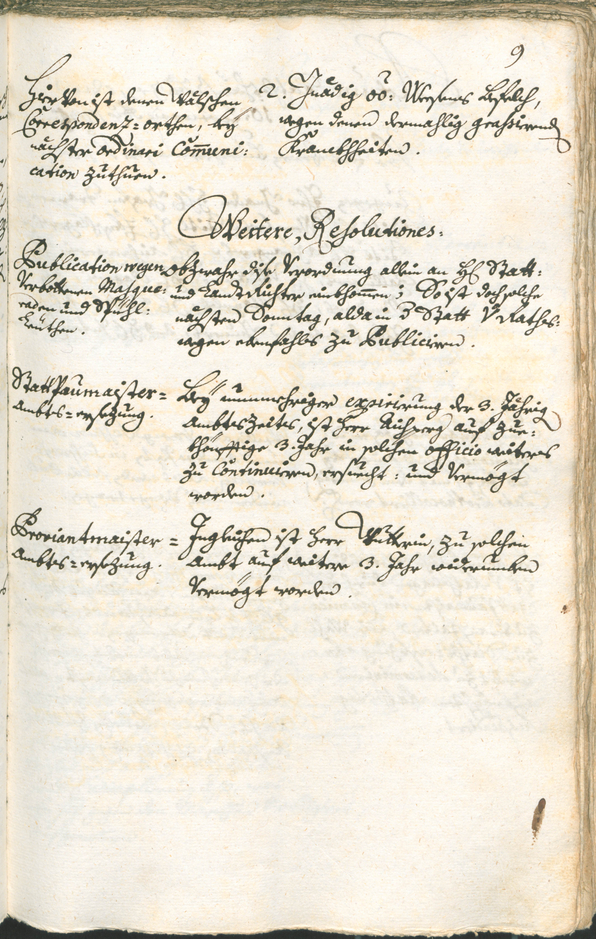 9
Hievon ist denen Wälschen
Correspondenz=orthen, bey
nächster ordinari Com̄uni:
cation zuthuen.
2. Gnädig oö: Weesens Befelch,
wegen denen dermahlig grassirend
Krankhheiten.
Weitere Resolutiones.
Publication wegen
Verbottenen Masque:
raden und Spühl:
Leüthen.
obzwahr dise Verordnung allein an H: Statt:
und Landtrichter einkhom̄en; So ist doch solche
nächsten Sonntag, alda in der Statt Raths:
wegen ebenfahls zu Publiciren.
StattPaumaister=
Ambts=ersezung.
Bey nunmehriger expirirung der 3. Jährig
Ambtszeites, ist Herr auf zue:
khönfftige 3. Jahr in solchem officio weiters
zu Continuiren, ersuecht: und Vermögt
worden.
Proviantmaister=
Ambts=ersezung.
Ingleichen ist Herr zu solchem
Ambt auf weitere 3. Jahr widerumben
Vermögt worden.